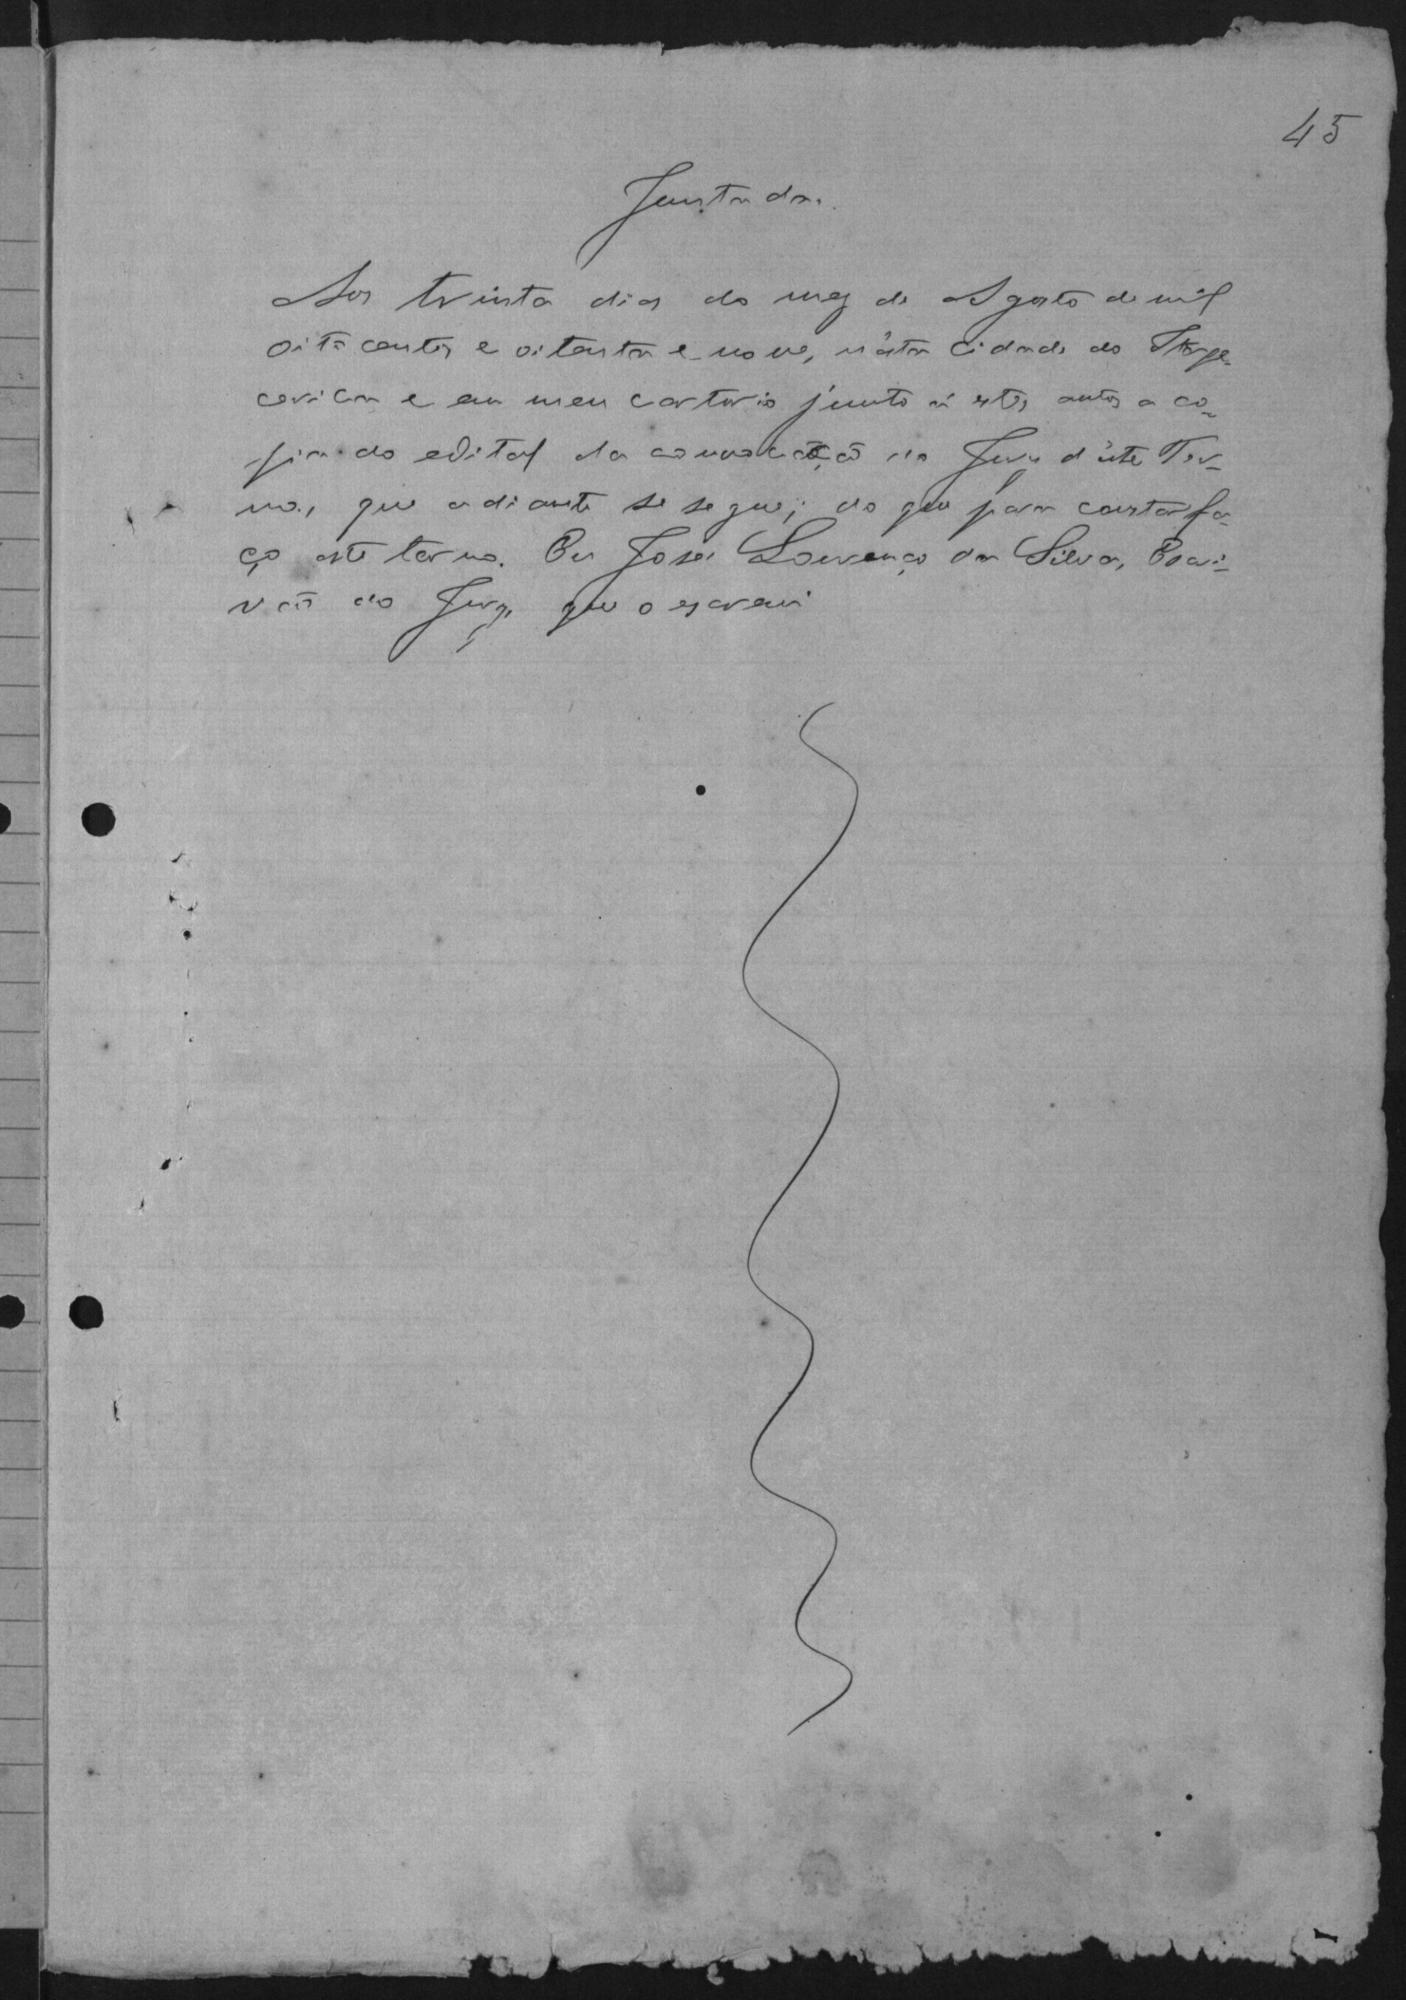 45
Juntada.
Aos trinta dias do mez de Agosto de mil
oito centos e oitenta e nove, n'esta cidade do Itape
cerica e em meu cartorio junto á estes autos a co-
pia do edital da convocação do Jury d'este Ter-
mo, que adiante se segue; do que para constar fa-
ço este termo. Eu José Lourenço da Silva, Escri-
vão do Jury, que o escrevi